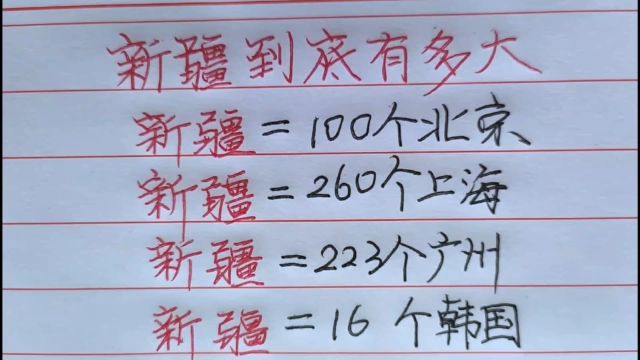 新疆到底有多大
新疆=100个北京
新疆=260个上海
新疆=223个广州
新疆=16个韩国